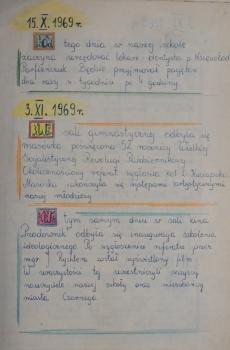 15.X.1969r.
Od tego dnia w naszej szkole
zaczyna urzędować lekarz-dentysta p. Krzewoład
Będzie przyjmował pacjentów
dwa razy w tygodniu po 4 godziny.
3.XI.1969r.
W sali gimnastycznej odbyła się
masówka poświęcona 52 rocznicy Wielkiej
Socjalistycznej Rewolucji Październikowej.
Okolicznościowy referat wygłosiła kol.
Masówka zakończyła się występami artystycznymi
naszej młodzieży.
W tym samym dniu w sali kina
"Przodownik" odbyła się inauguracja szkolenia
ideologicznego. Po wygłoszeniu referatu przez
mgr został wyświetlony film.
W uroczystości tej uczestniczyli wszyscy
nauczyciele naszej szkoły oraz mieszkańcy
miasta Czarnego.